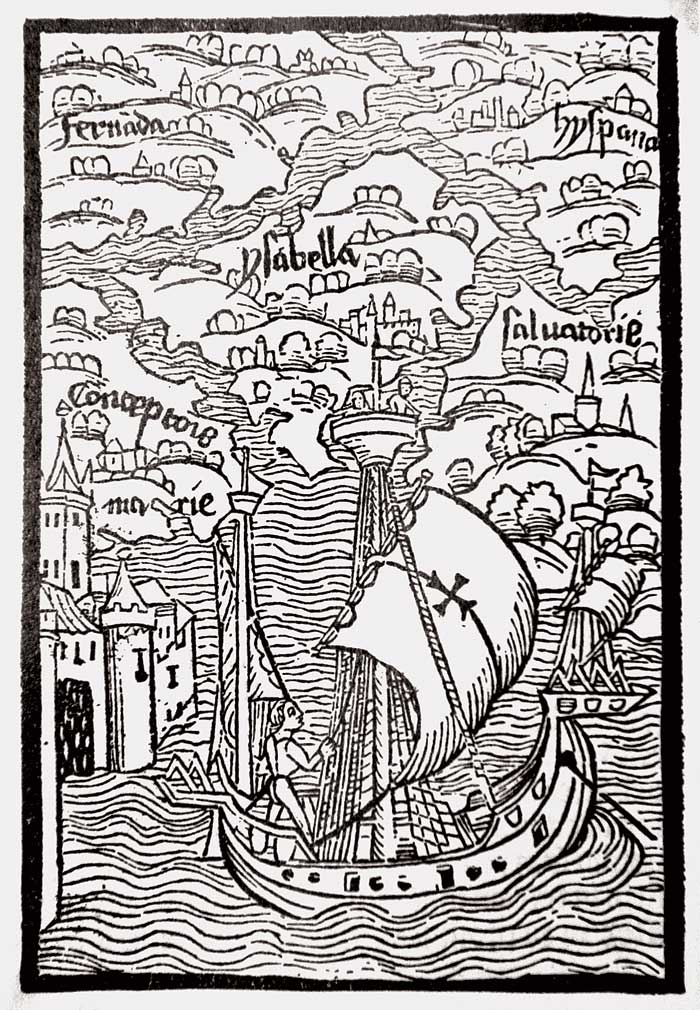 fernada
hyspana
ysabella
saluatorie
Conceptois
marie